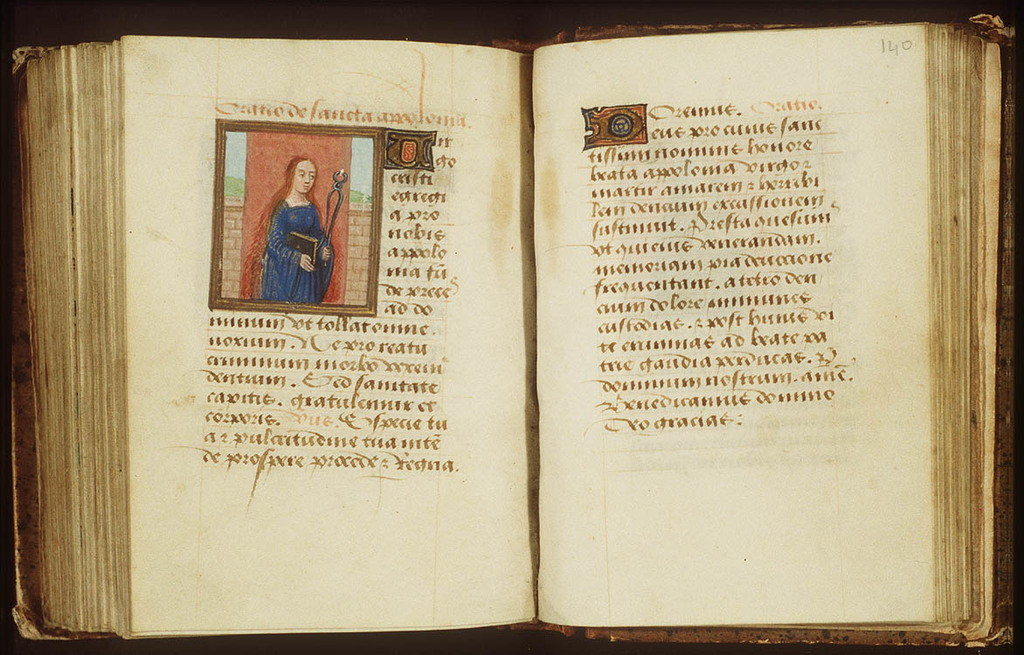 Oratio de sancta appolonia.
Vir
go
cristi
egregi
a pro
nobis
appolo
nia fū
de prece
ad do
minum vt tollat omne
noxium. Ne pro reatu
criminum morbo vexem̄
dentium. Sed sanitate
capitis. gratulemur et
corporis. Vus. Specie tu
a ⁊ pulcritudine tua intē
de prospere procede ⁊ Regna.
140
Oremus. Oratio.
Deus pro cuius sanc
tissimi nominis honore
beata appolonia virgo ⁊
martir amarem ⁊ horribi
lem dencium excassionem
sustinuit. Presta quesumꝰ
vt qui eius venerandam.
memoriam pia devocione
frequentant. a tetro den
cium dolore immunes
custodias. ⁊ post huius vi
te erumnas ad beate pa
trie gaudia perducas. P
dominum nostrum. amē.
Benedicamus domino
Deo gracias: